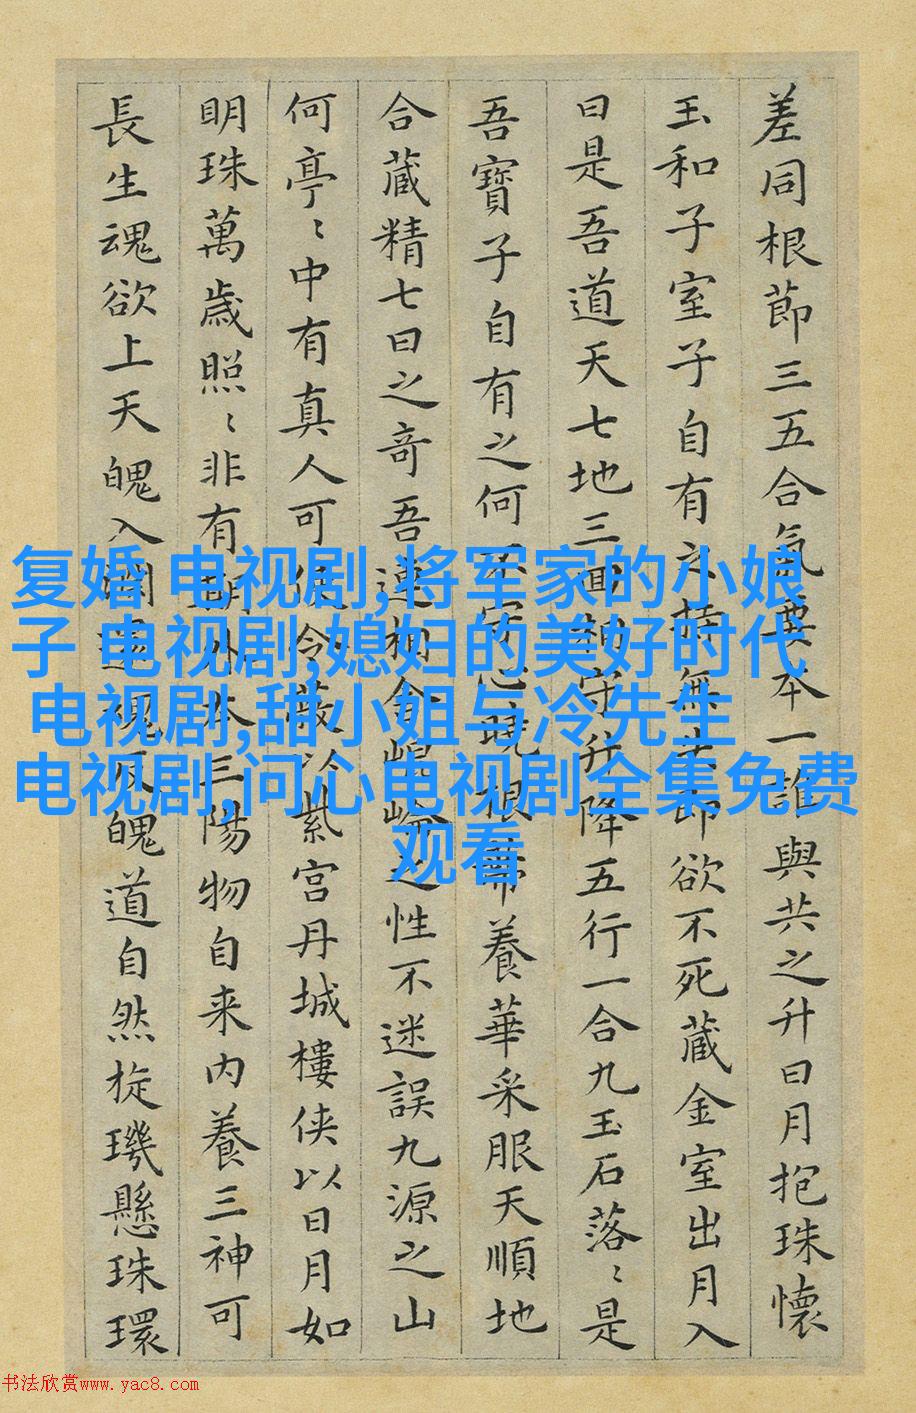 差同根節三五合氣要本一誰與共之升日月抱珠懷
玉和子室子自有之持無失即欲不死藏金室出月入
日是吾道天七地三回相守升降五行一合九玉石落〻是
吾寶子自有之何不守心曉根蒂養華采服天順地
合藏精七日之奇吾連相合崐崘之性不迷誤九源之山
何亭〻中有真人可使令蔽以紫宮丹城樓俠以日月如
明珠萬歲照〻非有期外本三陽物自来内養三神可
長生魂欲上天魄入淵還魂反魄道自然旋璣懸珠環
复婚 电视剧,将军家的小娘
子 电视剧,媳妇的美好时代
电视剧,甜小姐与冷先生
电视剧,问心电视剧全集免费
观看
书法欣赏www.yac8.com